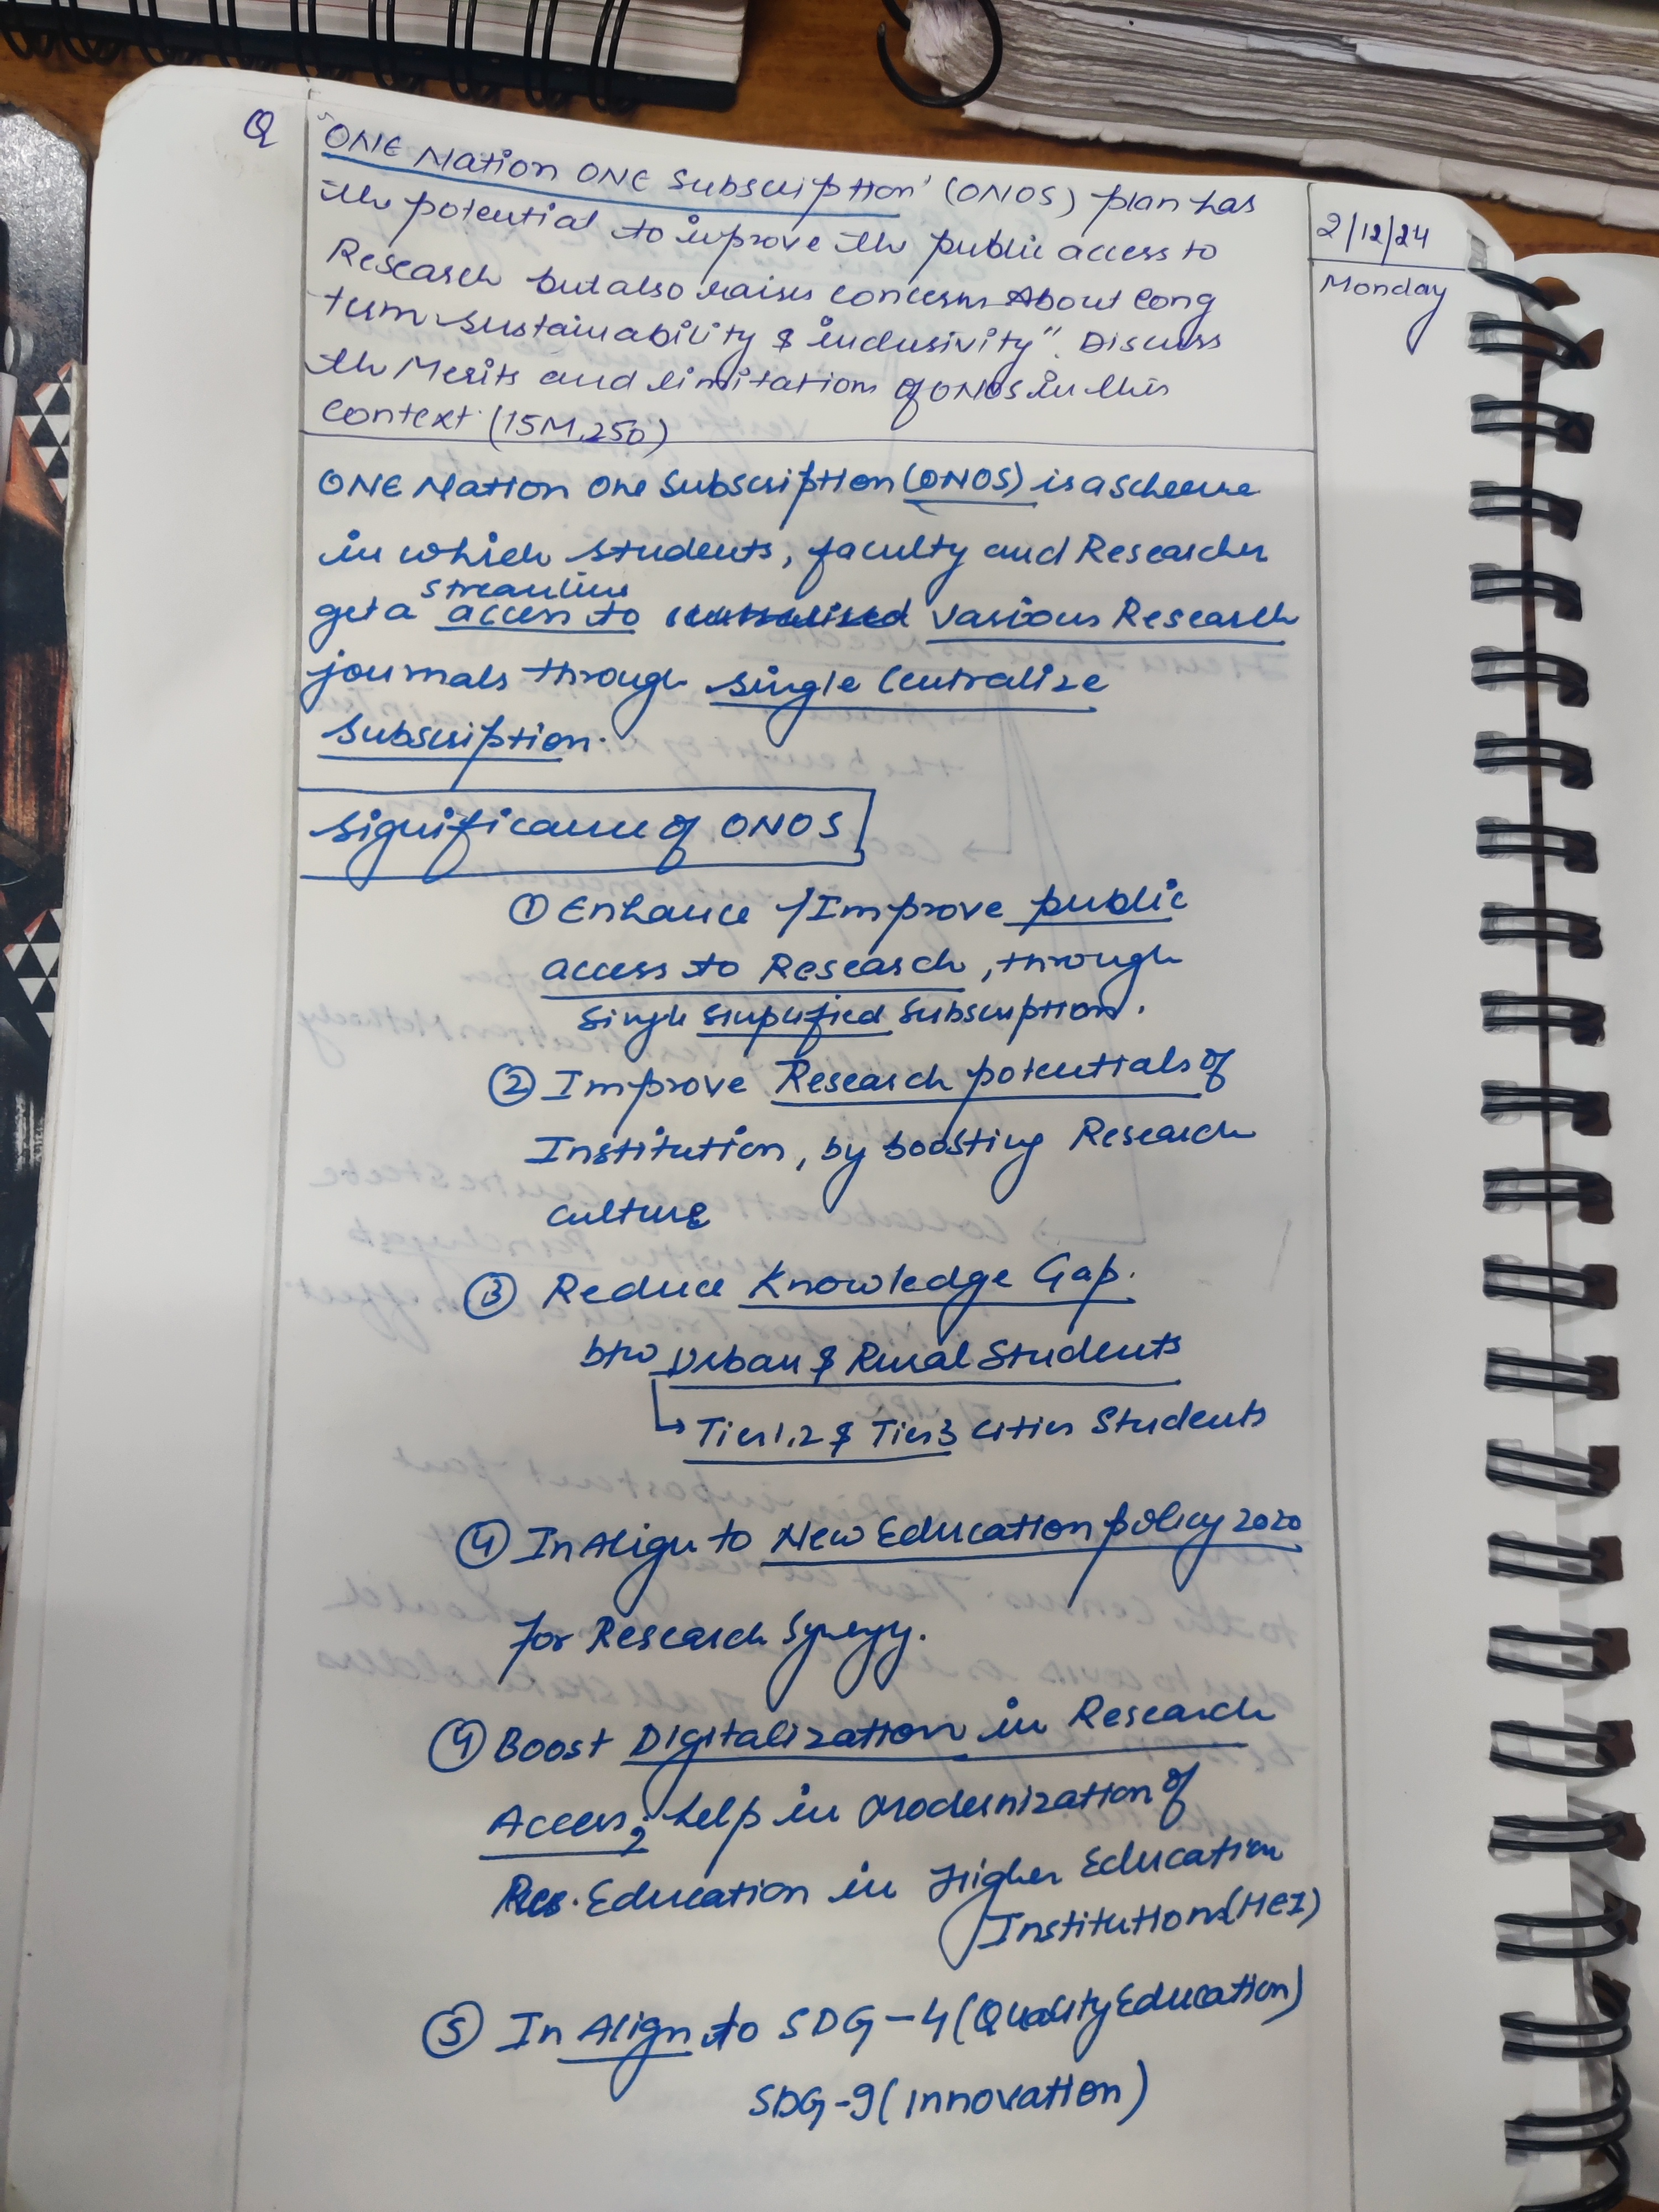 Q
"ONE Nation ONE Subscription' (ONOS) plan has
the potential to improve the public access to
Research but also raises concerns About long
term sustainability & inclusivity". Discuss
the Merits and limitations of ONOS in this
Context. (15M,250)
2/12/24
Monday
ONE Nation One Subscription (ONOS) is a scheme
in which students, faculty and Researcher
streamline
get a access to various Research
journals through single Centralize
Subscription.
Significance of ONOS
① Enhance / Improve public
access to Research, through
Single Simplified Subscription.
② Improve Research potentials of
Institution, by boosting Research
culture
③ Reduce Knowledge Gap.
btw Urban & Rural Students
↳ Tier 1,2 & Tier 3 cities Students
④ In Align to New Education policy 2020
for Research Synergy.
④ Boost Digitalization in Research
Access, help in Modernization of
Education in Higher Education
Institutions (HEI)
⑤ In Align to SDG-4 (Quality Education)
SDG-9 (Innovation)